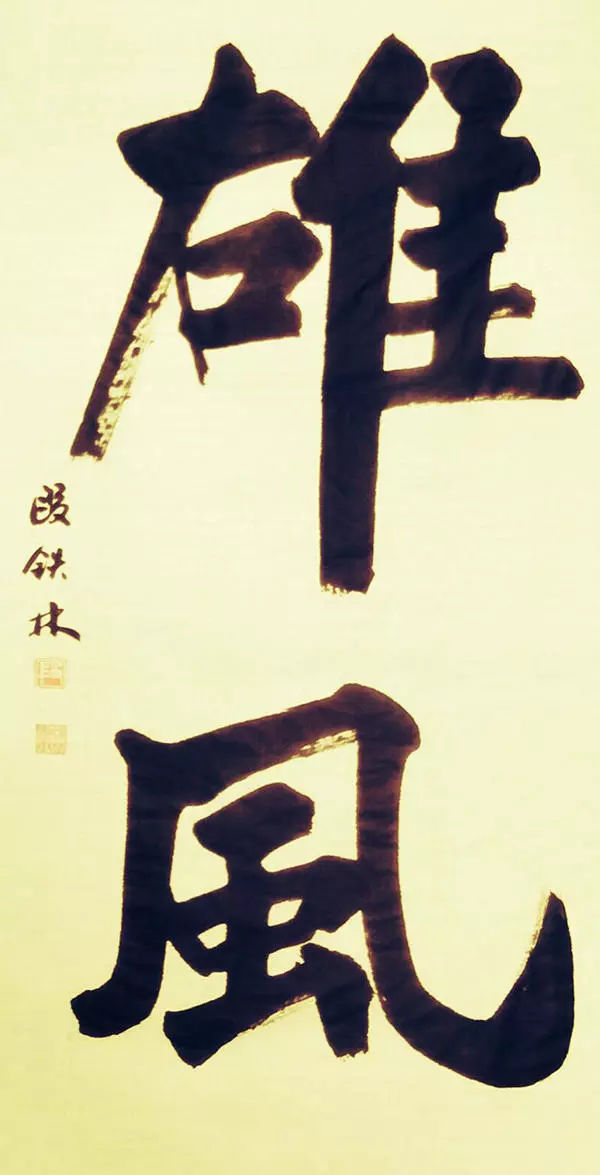 雄風
段铁林